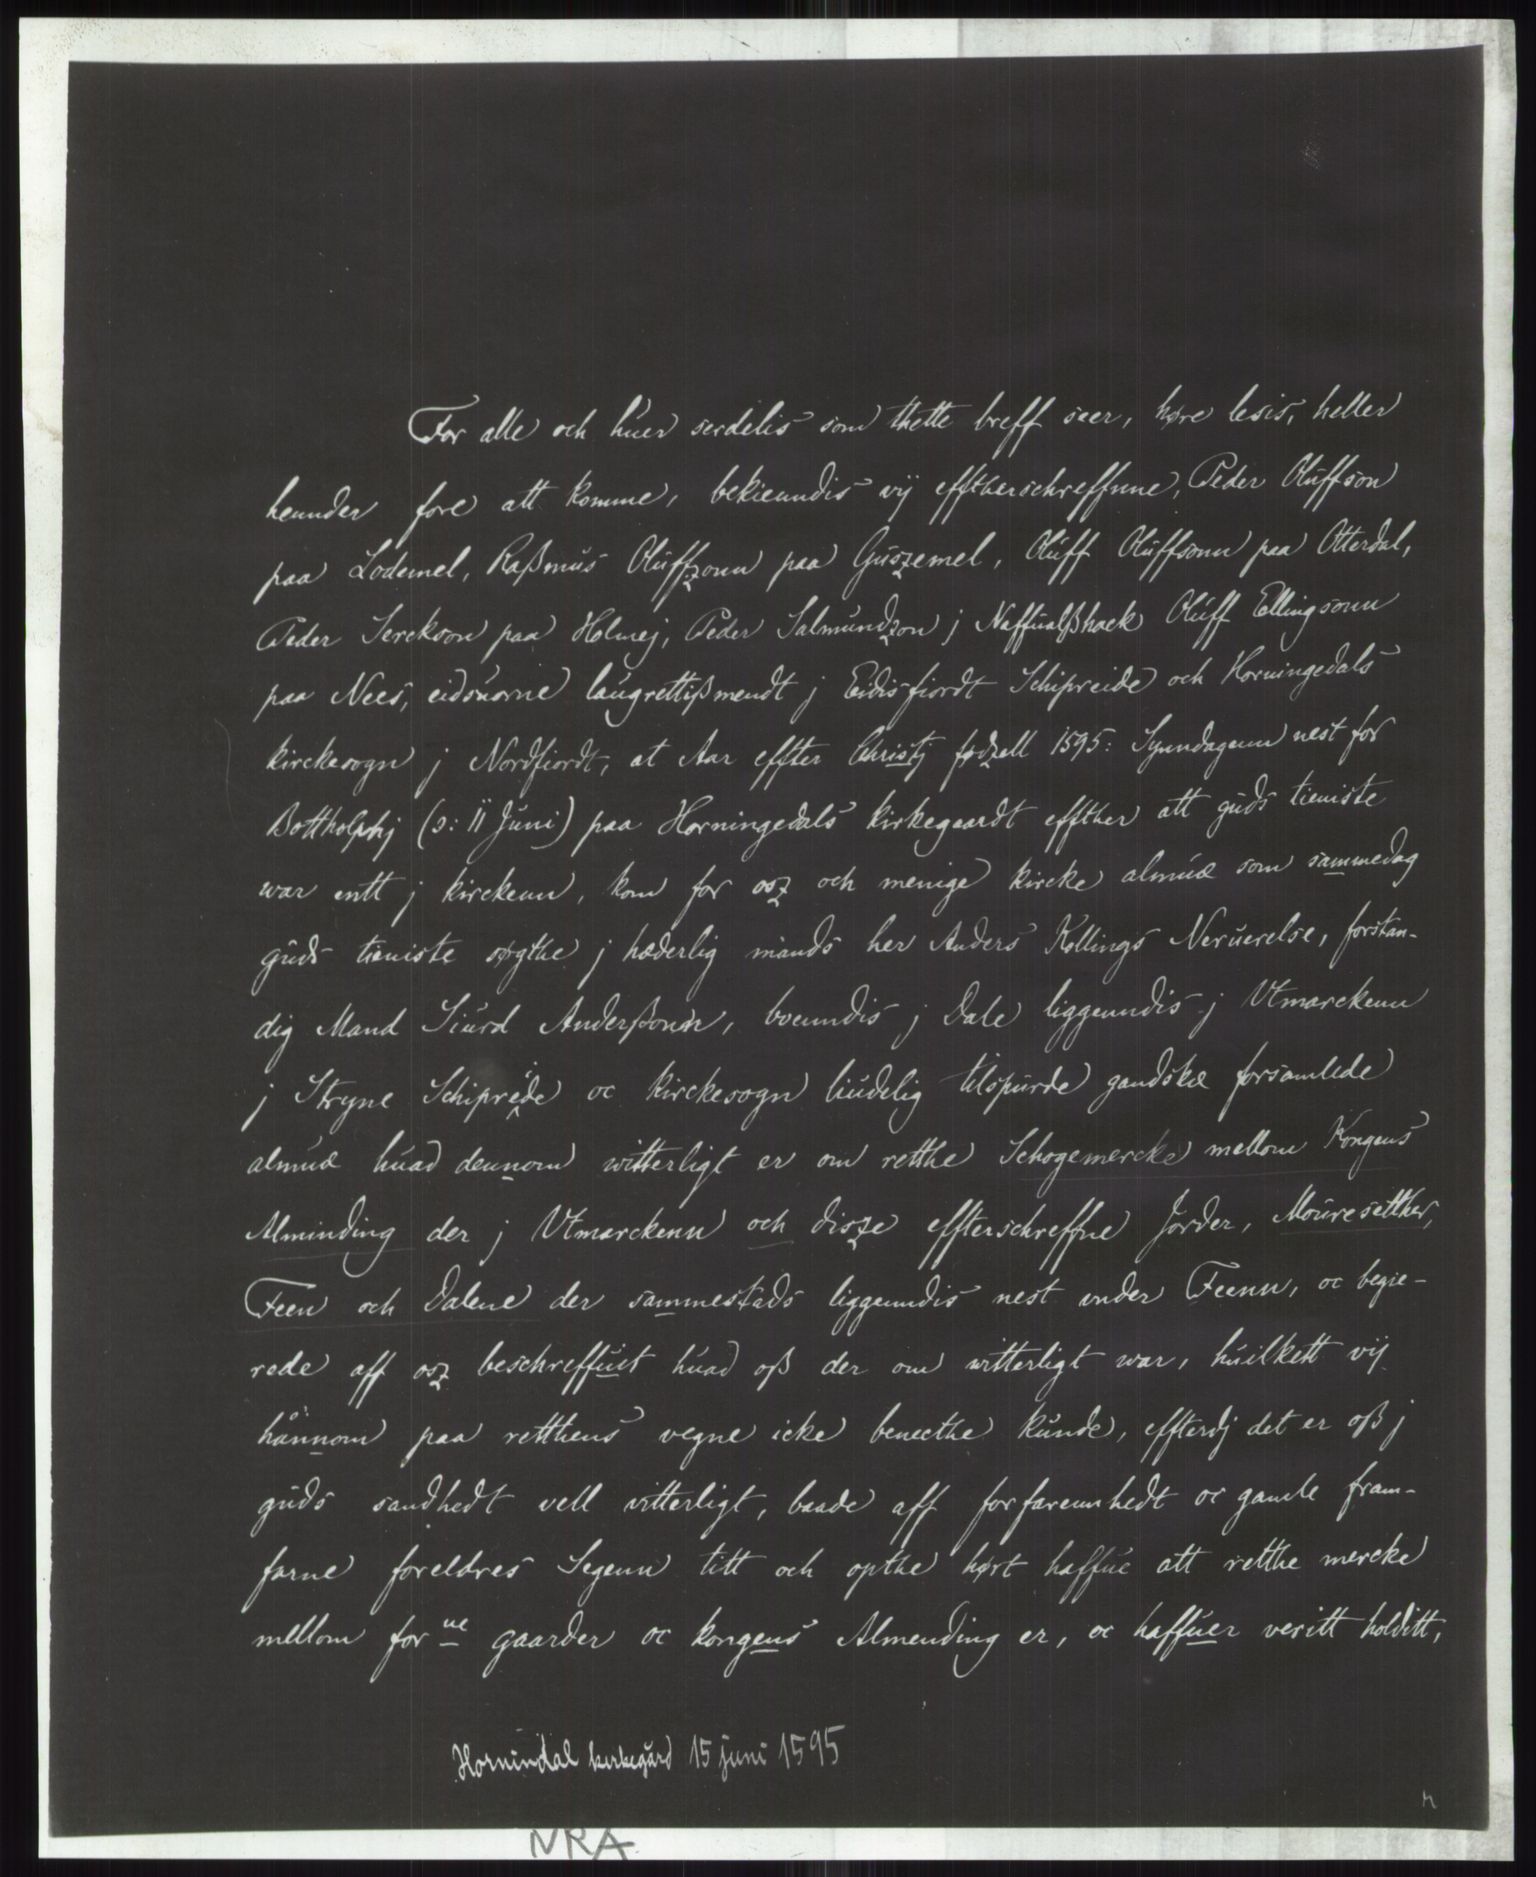 For alle och huer serdelis som thette breff seer, høre lesis, heller
hennder fore att komme, bekienndis vij efftherschreffnne, Peder Oluffson
paa Lodemel, Raßmus Oluffzonn paa Guszemel, Oluff Oluffsonn paa Otterdal,
Peder Serckson paa Holmej, Peder Salmundzon j Naffualßhack Oluff Ellingsonn
paa Nees, eidsuorne laugrettißmendt j Eidisfiordt Schipreide och Horningedals
kirckesogn j Nordfiordt, at Aar effter Christj fødzell 1595: Synndagenn nest for
Bottholphj (ɔ: 11 Juni) paa Horningedals kirkegaardt effther att guds tieniste
war entt j kirckenn, kom for osz och menige kircke almue som sammedag
guds tieniste søgthe j hæderlig mands her Anders Kollings Neruerelse, forstan-
dig Mand Siurd Anderßonn, boenndis j Dale liggenndis j Vtmarckenn
j Stryne Schipréde oc kirckesogn liudelig tilspurde gandske forsamlede
almue huad dennom witterligt er om retthe Schogemercke mellom Kongens
Alminding der j Vtmarckenn och disze effterschreffne Jorder, Mouresetther,
Feen och Dalene der sammestads liggenndis nest vnder Feenn, oc begie-
rede aff osz beschreffuit huad oß der om witterligt war, huilkett vij
hånnom paa retthens vegne icke benecthe kunde, effterdj det er oß j
guds sandhedt vell vitterligt, baade aff forfarennhedt oc gamle fram-
farne foreldres Segenn titt och opthe hørt haffue att retthe mercke
mellom for ne gaarder oc kongens Almending er, oc haffuer veritt holditt,
Hornindal kirkegård 15 juni 1595
NRA